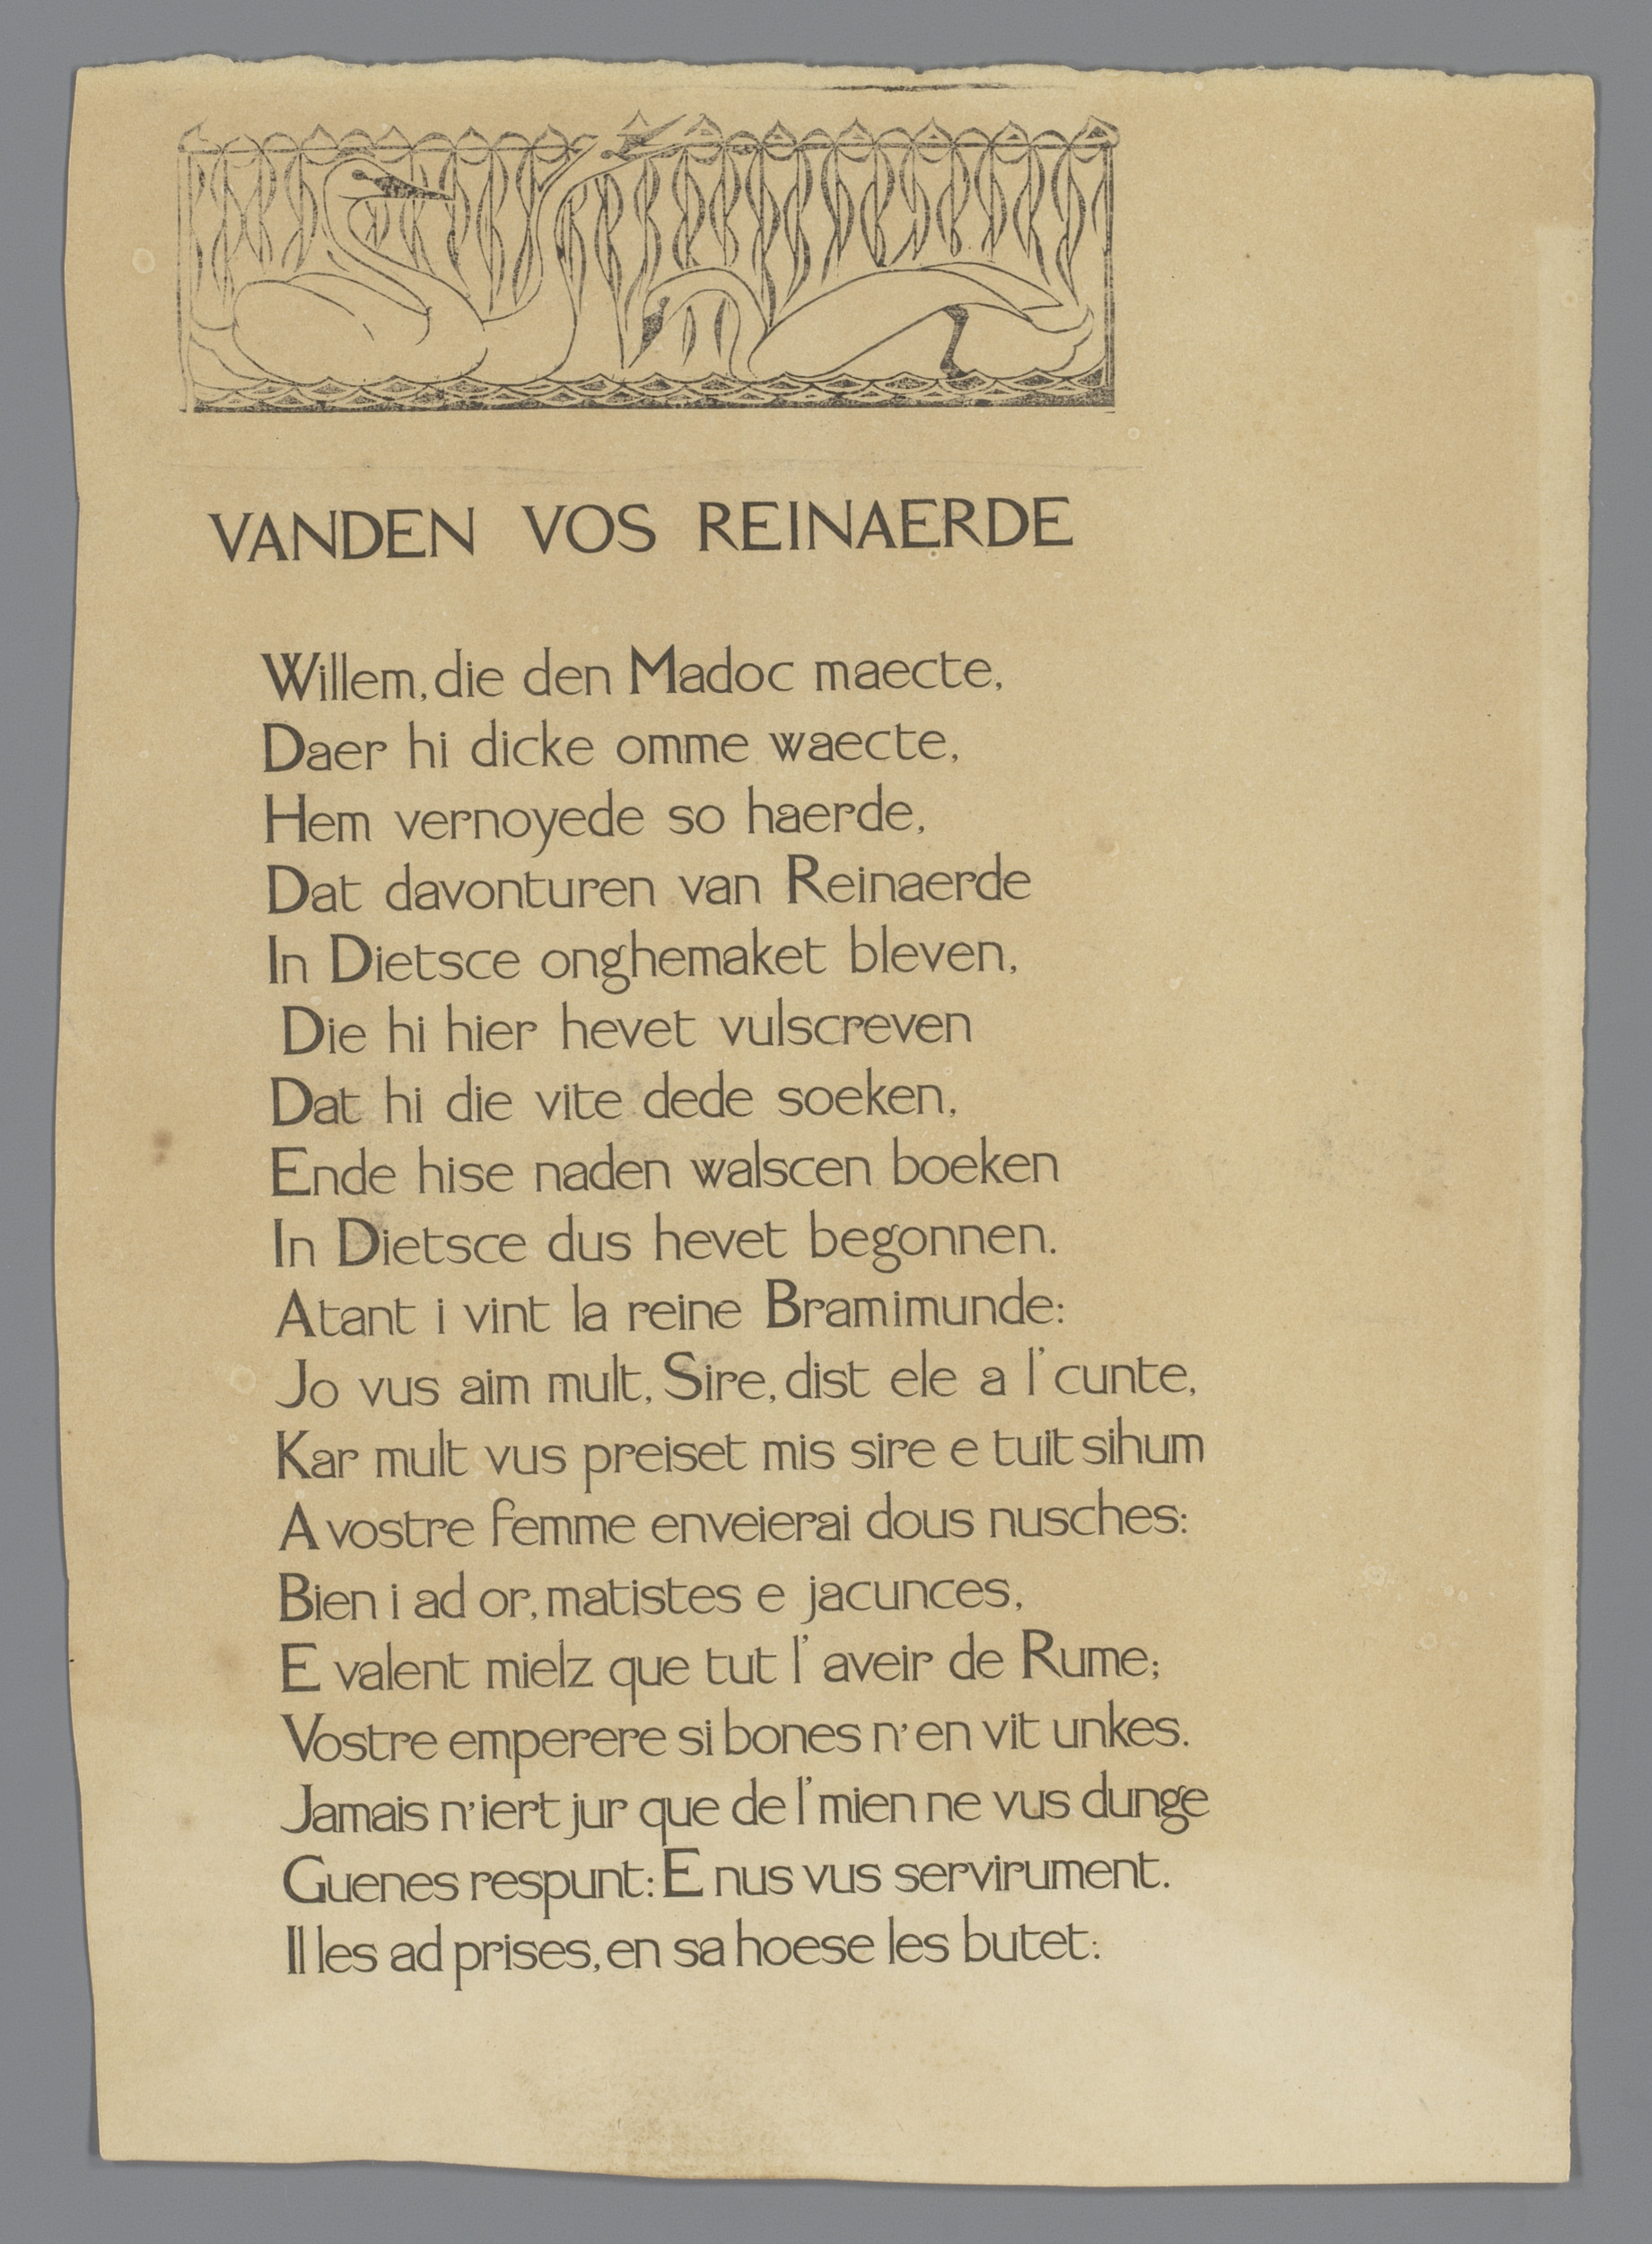 VANDEN VOS REINAERDE
Willem, die den Madoc maecte,
Daer hi dicke omme waecte,
Hem vernoyede so haerde,
Dat davonturen van Reinaerde
In Dietsce onghemaket bleven,
Die hi hier hevet vulscreven
Dat hi die vite dede soeken,
Ende hise naden walscen boeken
In Dietsce dus hevet begonnen.
Atant i vint la reine Bramimunde:
Jo vus aim mult, Sire, dist ele a l'cunte,
Kar mult vus preiset mis sire e tuit sihum
A vostre femme enveierai dous nusches:
Bien i ad or, matistes e jacunces,
E valent mielz que tut l'aveir de Rume;
Vostre emperere si bones n'en vit unkes.
Jamais n'iert jur que de l'mien ne vus dunge
Guenes respunt: E nus vus servirument.
Il les ad prises, en sa hoese les butet: